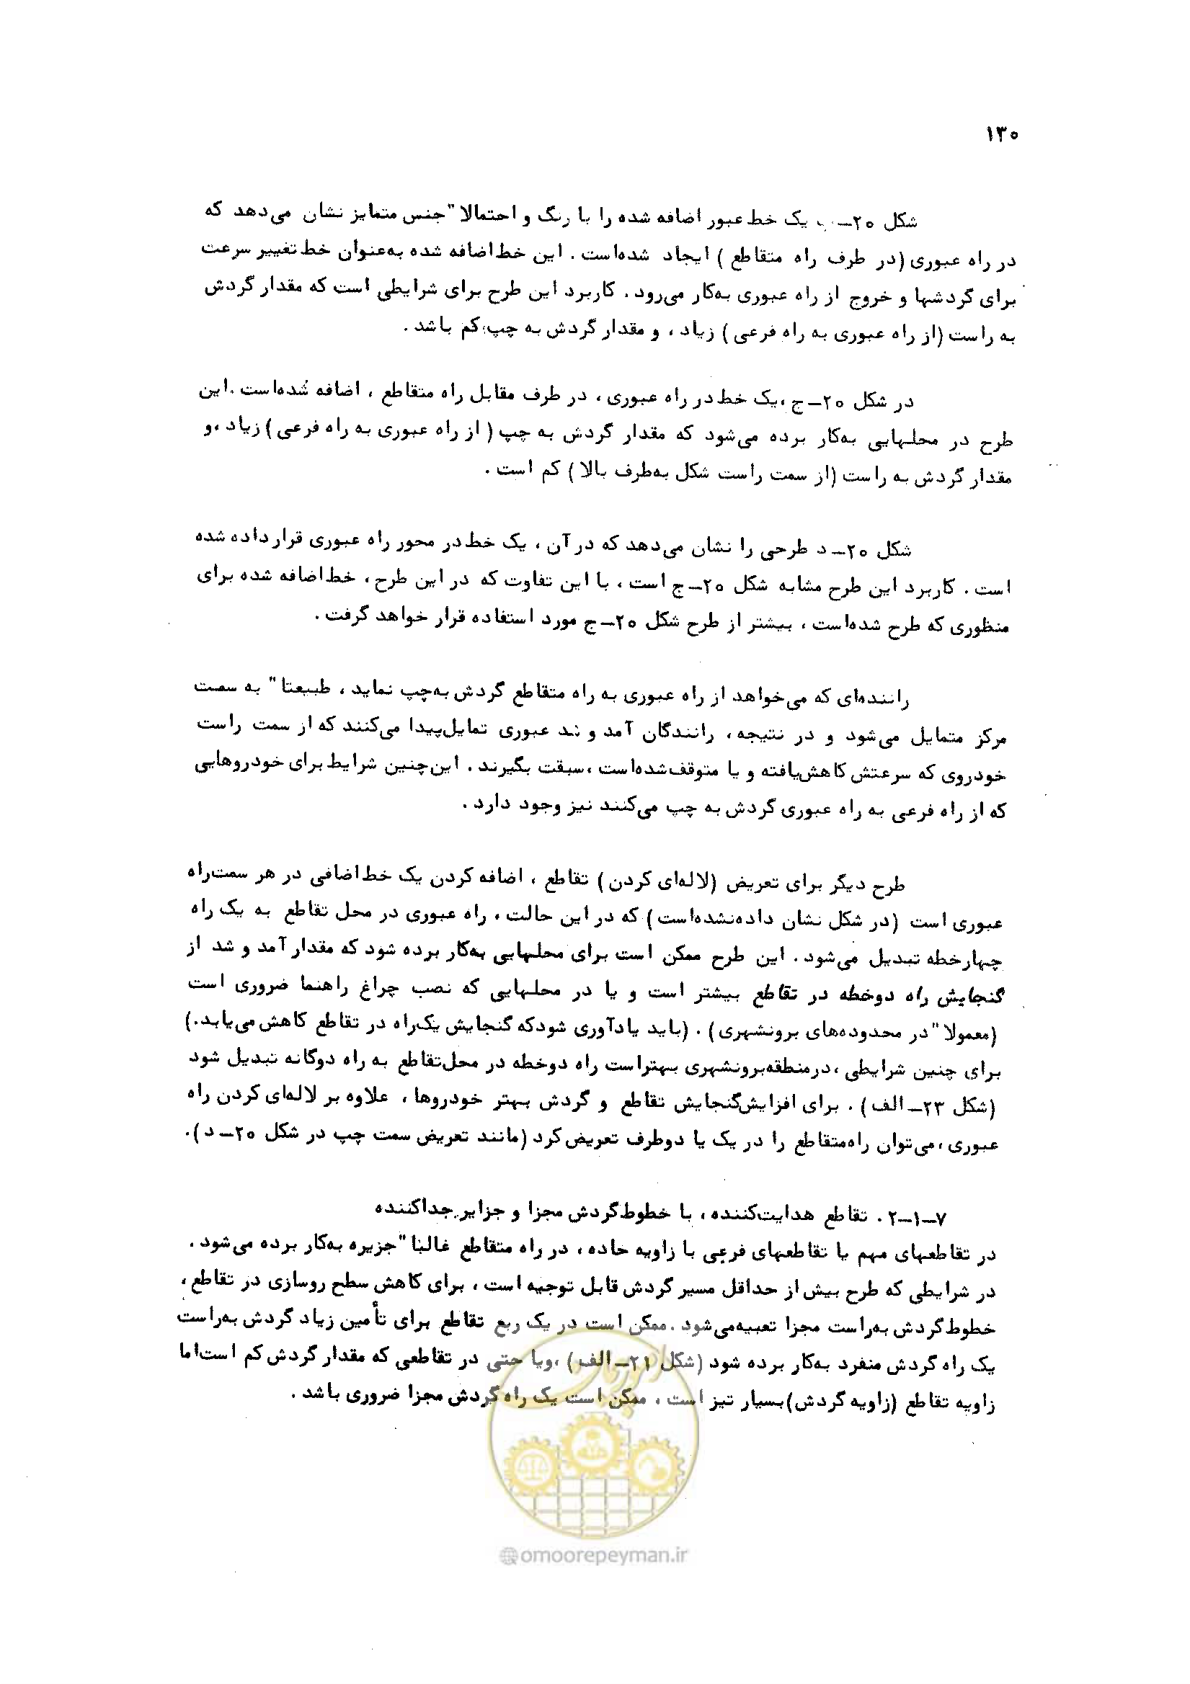 ۱۳۰
شکل ۲۰ــ ب یک خط عبور اضافه شده را با رنگ و احتمالا" جنس متمایز نشان می‌دهد که
در راه عبوری (در طرف راه متقاطع) ایجاد شده‌است. این خط اضافه شده به‌عنوان خط تغییر سرعت
برای گردشها و خروج از راه عبوری به‌کار می‌رود. کاربرد این طرح برای شرایطی است که مقدار گردش
به راست (از راه عبوری به راه فرعی) زیاد، و مقدار گردش به چپ،کم باشد.
در شکل ۲۰ــ ج ،یک خط در راه عبوری، در طرف مقابل راه متقاطع، اضافه شده‌است.این
طرح در محلهایی به‌کار برده می‌شود که مقدار گردش به چپ (از راه عبوری به راه فرعی) زیاد،و
مقدار گردش به راست (از سمت راست شکل به‌طرف بالا) کم است.
شکل ۲۰ــ د طرحی را نشان می‌دهد که در آن، یک خط در محور راه عبوری قرار داده شده
است. کاربرد این طرح مشابه شکل ۲۰ــ ج است، با این تفاوت که در این طرح، خط اضافه شده برای
منظوری که طرح شده‌است، بیشتر از طرح شکل ۲۰ــ ج مورد استفاده قرار خواهد گرفت.
راننده‌ای که می‌خواهد از راه عبوری به راه متقاطع گردش به‌چپ نماید، طبیعتا" به سمت
مرکز متمایل می‌شود و در نتیجه، رانندگان آمد و شد عبوری تمایل‌پیدا می‌کنند که از سمت راست
خودروی که سرعتش کاهش‌یافته و یا متوقف‌شده‌است ،سبقت بگیرند. این‌چنین شرایط برای خودروهایی
که از راه فرعی به راه عبوری گردش به چپ می‌کنند نیز وجود دارد.
طرح دیگر برای تعریض (لاله‌ای کردن) تقاطع، اضافه کردن یک خط اضافی در هر سمت‌راه
عبوری است (در شکل نشان داده‌نشده‌است) که در این حالت، راه عبوری در محل تقاطع به یک راه
چهارخطه تبدیل می‌شود. این طرح ممکن است برای محلهایی به‌کار برده شود که مقدار آمد و شد از
گنجایش راه دوخطه در تقاطع بیشتر است و یا در محلهایی که نصب چراغ راهنما ضروری است
(معمولا" در محدوده‌های برونشهری). (باید یادآوری شودکه گنجایش یک‌راه در تقاطع کاهش‌می‌یابد.)
برای چنین شرایطی ،درمنطقه‌برونشهری بهتراست راه دوخطه در محل‌تقاطع به راه دوگانه تبدیل شود
(شکل ۲۳ــ الف). برای افزایش‌گنجایش تقاطع و گردش بهتر خودروها، علاوه بر لاله‌ای کردن راه
عبوری،می‌توان راه‌متقاطع را در یک یا دوطرف تعریض‌کرد (مانند تعریض سمت چپ در شکل ۲۰ــ د).
۲ــ۱ــ۷. تقاطع هدایت‌کننده، با خطوط گردش مجزا و جزایر جداکننده
در تقاطعهای مهم یا تقاطعهای فرعی با زاویه حاده، در راه متقاطع غالبا" جزیره به‌کار برده می‌شود.
در شرایطی که طرح بیش از حداقل مسیر گردش قابل توجیه است، برای کاهش سطح روسازی در تقاطع،
خطوط گردش به‌راست مجزا تعبیه‌می‌شود.ممکن است در یک ربع تقاطع برای تأمین زیاد گردش به‌راست
یک راه گردش منفرد به‌کار برده شود (شکل ۲۱ــ الف)،ویا حتی در تقاطعی که مقدار گردش کم است‌اما
زاویه تقاطع (زاویه گردش) بسیار تیز است، ممکن است یک راه گردش مجزا ضروری باشد.
امور پیمان
@omoorepeyman.ir